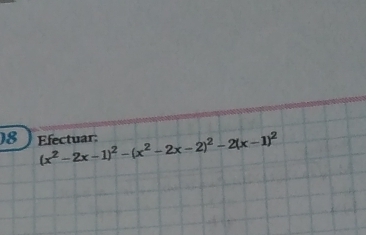 08 Efectuar:
(x² – 2x – 1)² – (x² – 2x – 2)² – 2(x – 1)²